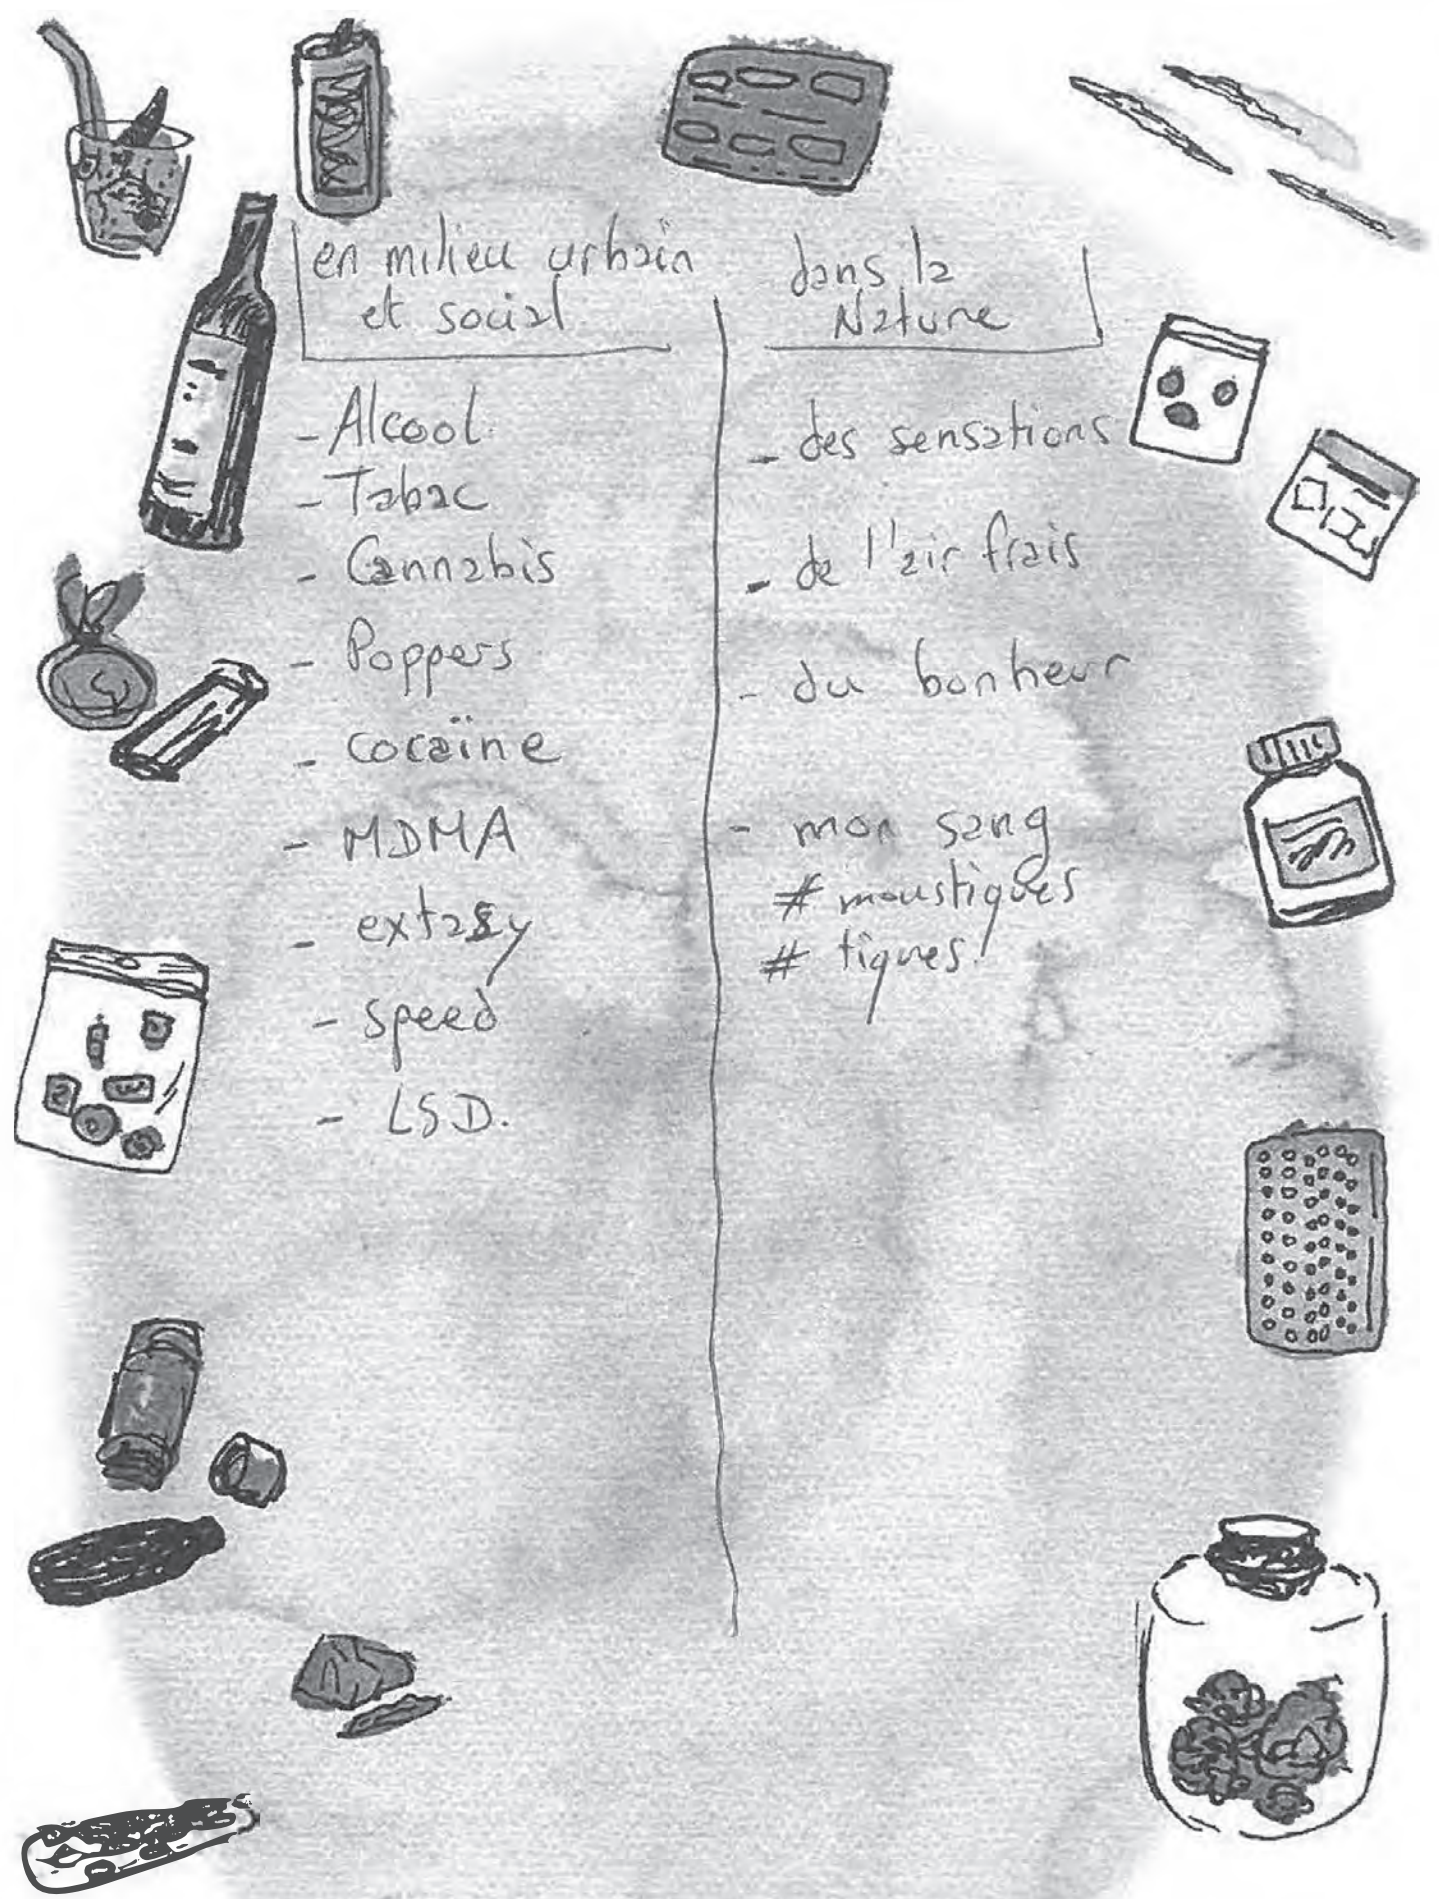 en milieu urbain
et social
- Alcool
- Tabac
- Cannabis
- Poppers
- cocaïne
- MDMA
- extasy
- speed
- LSD.
dans la
Nature
- des sensations
- de l'air frais
- du bonheur
- mon sang
# moustiques
# tiques!